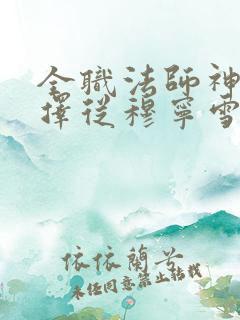 全職法師神
擇從穆寧雪
依依蘭兮
未经同意禁止转载